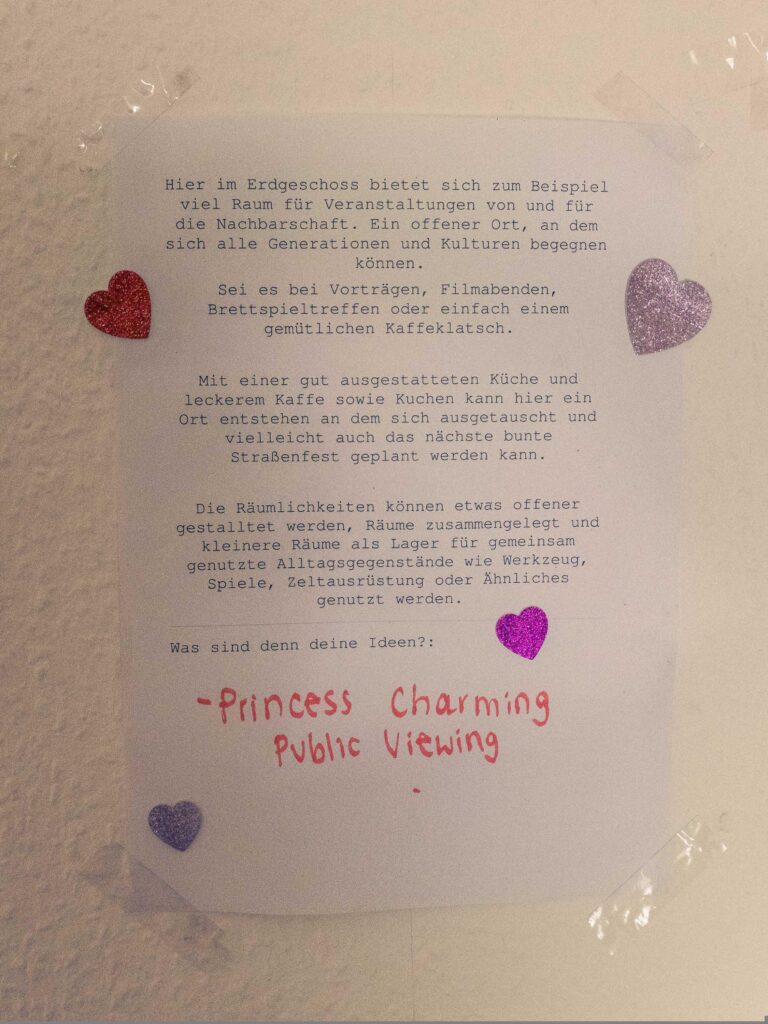 Hier im Erdgeschoss bietet sich zum Beispiel
viel Raum für Veranstaltungen von und für
die Nachbarschaft. Ein offener Ort, an dem
sich alle Generationen und Kulturen begegnen
können.
Sei es bei Vorträgen, Filmabenden,
Brettspieltreffen oder einfach einem
gemütlichen Kaffeklatsch.
Mit einer gut ausgestatteten Küche und
leckerem Kaffe sowie Kuchen kann hier ein
Ort entstehen an dem sich ausgetauscht und
vielleicht auch das nächste bunte
Straßenfest geplant werden kann.
Die Räumlichkeiten können etwas offener
gestalltet werden, Räume zusammengelegt und
kleinere Räume als Lager für gemeinsam
genutzte Alltagsgegenstände wie Werkzeug,
Spiele, Zeltausrüstung oder Ähnliches
genutzt werden.
Was sind denn deine Ideen?:
-Princess Charming
Public Viewing